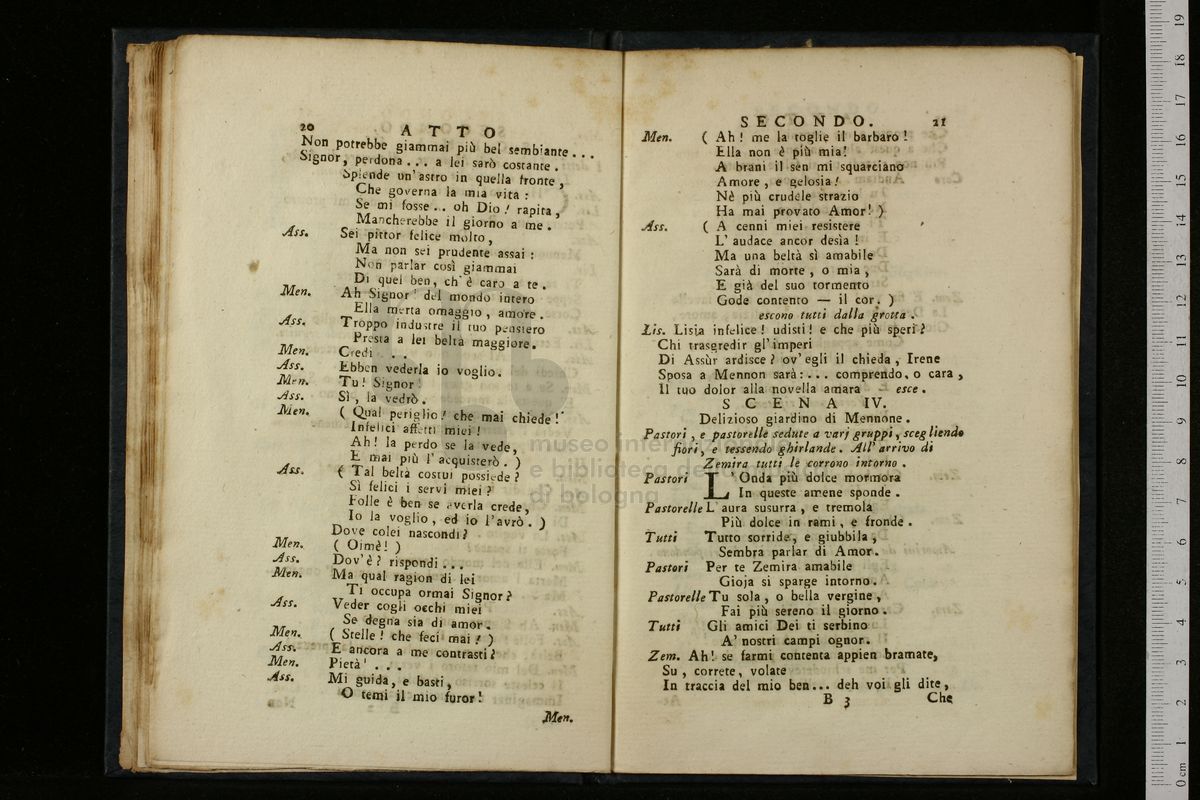 20
ATTO
Non potrebbe giammai più bel sembiante...
Signor, perdona... a lei sarò costante.
Splende un'astro in quella fronte,
Che governa la mia vita:
Se mi fosse.. oh Dio! rapita,
Mancherebbe il giorno a me.
Ass. Sei pittor felice molto,
Ma non sei prudente assai:
Non parlar così giammai
Di quel ben, ch'è caro a te.
Men. Ah Signor! del mondo intero
Ella merta omaggio, amore.
Ass. Troppo industre il tuo pensiero
Presta a lei beltà maggiore.
Men. Credi...
Ass. Ebben vederla io voglio.
Men. Tu! Signor!
Ass. Sì, la vedrò.
Men. (Qual periglio! che mai chiede!
Infelici affetti miei!
Ah! la perdo se la vede,
E mai più l'acquisterò.)
Ass. (Tal beltà costui possiede?
Sì felici i servi miei?
Folle è ben se averla crede,
Io la voglio, ed io l'avrò.)
Dove colei nascondi?
Men. (Oimè!)
Ass. Dov'è? rispondi...
Men. Ma qual ragion di lei
Ti occupa ormai Signor?
Ass. Veder cogli occhi miei
Se degna sia di amor.
Men. (Stelle! che feci mai!)
Ass. E ancora a me contrasti?
Men. Pietà!...
Ass. Mi guida, e basti,
O temi il mio furor!
Men.
SECONDO.
21
Men. (Ah! me la toglie il barbaro!
Ella non è più mia!
A brani il sen mi squarciano
Amore, e gelosia!
Nè più crudele strazio
Ha mai provato Amor!)
Ass. (A cenni miei resistere
L'audace ancor desìa!
Ma una beltà sì amabile
Sarà di morte, o mia,
E già del suo tormento
Gode contento — il cor.)
escono tutti dalla grotta.
Lis. Lisia infelice! udisti! e che più speri?
Chi trasgredir gl'imperi
Di Assùr ardisce? ov'egli il chieda, Irene
Sposa a Mennon sarà:... comprendo, o cara,
Il tuo dolor alla novella amara esce.
SCENA IV.
Delizioso giardino di Mennone.
Pastori, e pastorelle sedute a varj gruppi, scegliendo
fiori, e tessendo ghirlande. All'arrivo di
Zemira tutti le corrono intorno.
Pastori L'Onda più dolce mormora
In queste amene sponde.
Pastorelle L'aura susurra, e tremola
Più dolce in rami, e fronde.
Tutti Tutto sorride, e giubbila,
Sembra parlar di Amor.
Pastori Per te Zemira amabile
Gioja si sparge intorno.
Pastorelle Tu sola, o bella vergine,
Fai più sereno il giorno.
Tutti Gli amici Dei ti serbino
A' nostri campi ognor.
Zem. Ah! se farmi contenta appien bramate,
Su, correte, volate
In traccia del mio ben... deh voi gli dite,
B 3
Che
museo internazionale
e biblioteca della musica
di bologna
0 cm 1 2 3 4 5 6 7 8 9 10 11 12 13 14 15 16 17 18 19